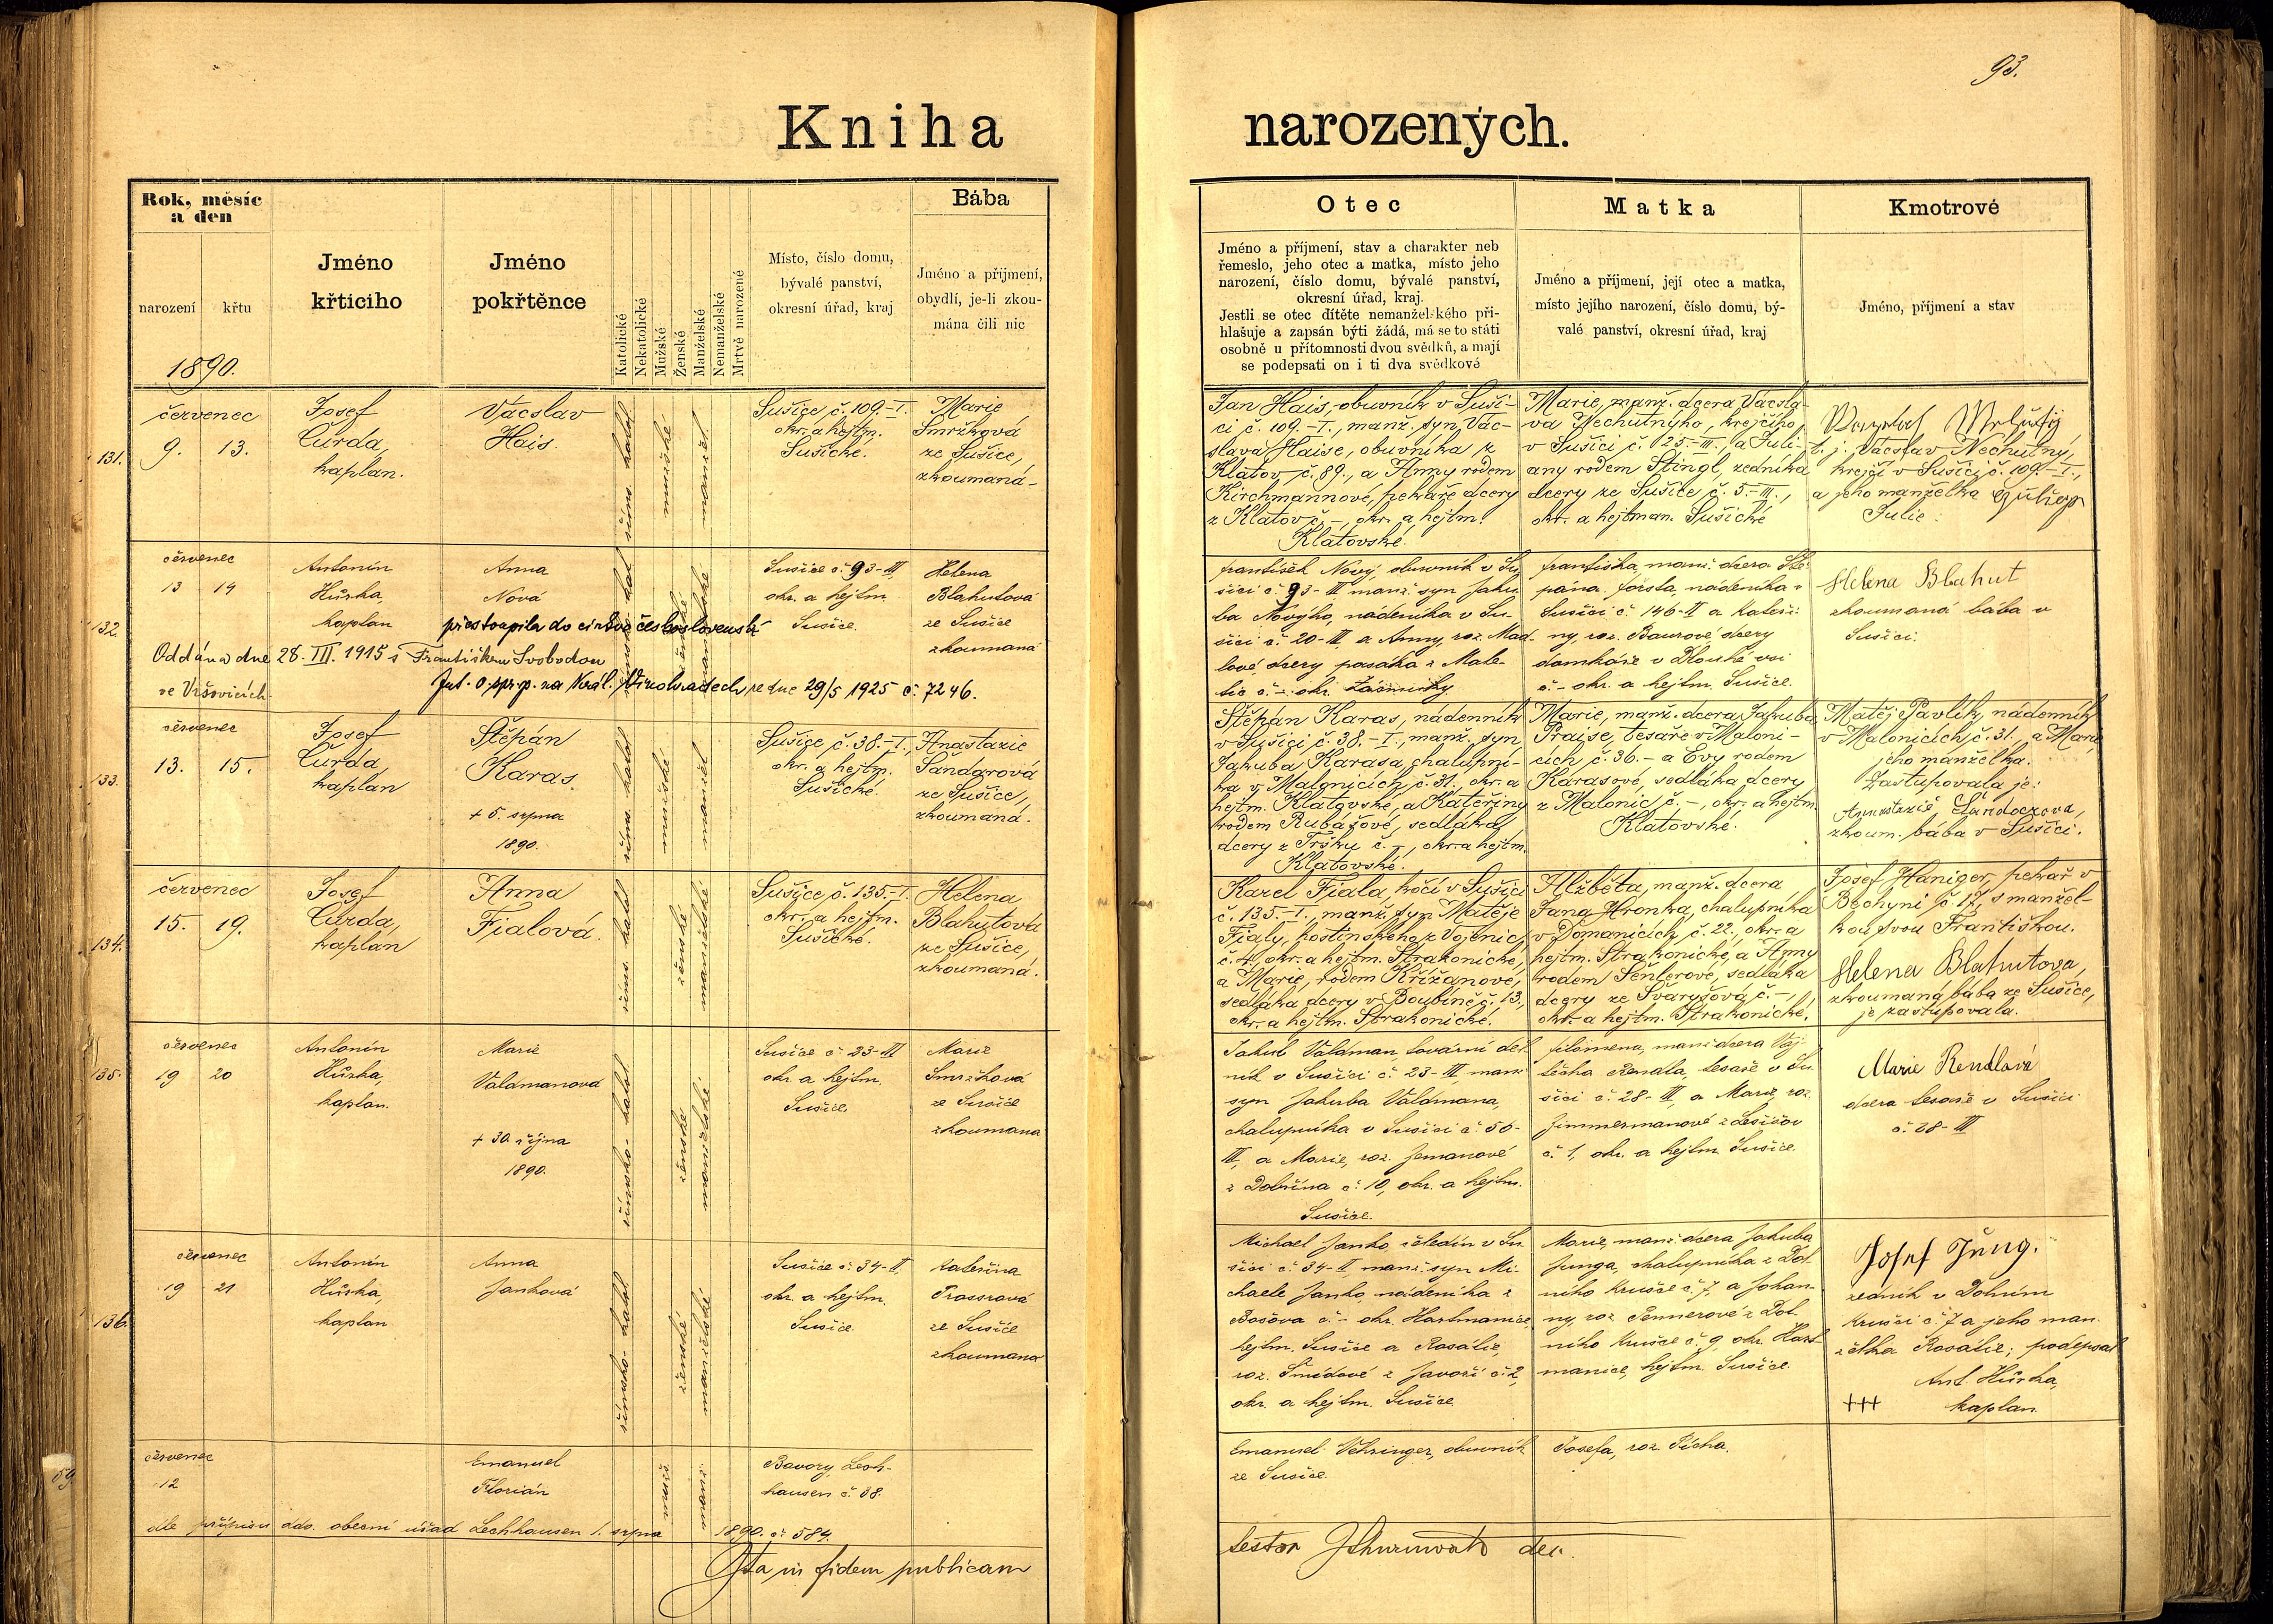 93.
Kniha narozených.
Rok, měsíc
a den
narození
křtu
1890.
Jméno
křticiho
Jméno
pokřtěnce
Katolické
Nekatolické
Mužské
Ženské
Manželské
Nemanželské
Mrtvě narozené
Místo, číslo domu,
bývalé panství,
okresní úřad, kraj
Bába
Jméno a příjmení,
obydlí, je-li zkou-
mána čili nic
Otec
Jméno a příjmení, stav a charakter neb
řemeslo, jeho otec a matka, místo jeho
narození, číslo domu, bývalé panství,
okresní úřad, kraj.
Jestli se otec dítěte nemanželského při-
hlašuje a zapsán býti žádá, má se to státi
osobně u přítomnosti dvou svědků, a mají
se podepsati on i ti dva svědkové
Matka
Jméno a příjmení, její otec a matka,
místo jejího narození, číslo domu, bý-
valé panství, okresní úřad, kraj
Kmotrové
Jméno, příjmení a stav
131.
červenec
9. 13.
Josef
Čurda,
kaplan.
Vácslav
Hais.
řims. katol.
mužské
manžel.
Sušice, č. 109.-I.
okr. a hejtm.
Sušické.
Marie
Smržková
ze Sušice,
zkoumaná-
Jan Hais, obuvník v Suši-
ci č. 109.-I., manž. syn Vác-
slava Haise, obuvníka z
Klatov č. 89., a Anny rodem
Kirchmannové, pekaře dcery
z Klatov č. -, okr. a hejtm.
Klatovské.
Marie, manž. dcera Vácsla-
va Nechutnýho, krejčího
v Sušici č. 125.-III., a Juli-
any rodem Stingl, zedníka
dcery ze Sušice č. 5.-III.,
okr. a hejtman. Sušické
t. j. Vácslav Nechutný,
krejčí v Sušici č. 109.-I.,
a jeho manželka
Julie.
132.
červenec
13 14
Antonín
Hůrka,
kaplan
Anna
Nová
přestoupila do církve československé
Oddána dne 28. III. 1915 s Františkem Svobodou
ve Vršovicích
na Král. Vinohradech ze dne 29/5 1925 č. 7246.
ženské
manželské
Sušice č. 93-III,
okr. a hejtm.
Sušice.
Helena
Blahutová
ze Sušice
zkoumaná
František Nový, obuvník v Su-
šici č. 93-III manž. syn Jaku
ba Nového, nádeníka v Su-
šici č. 20-III, a Anny, roz. Mad-
lové dcery pasáka z Male-
tic č. - okr.
Františka, manž. dcera Ště-
pánaForsta, nádeníka v
Sušici č. 146-II a Kateři-
ny, roz. Baurové dcery
domkáře v Dlouhé vsi
č. - okr. a hejtm. Sušice.
Helena Blahut
zkoumaná bába v
Sušici.
133.
červenec
13. 15.
Josef
Čurda,
kaplan
Štěpán
Karas.
+ 5. srpna
1890.
řims. katol.
mužské
manžel.
Sušice, č. 38.-I.,
okr. a hejtm.
Sušické.
Anastazie
Šandarová
ze Sušice,
zkoumaná.
Štěpán Karas, nádenník
v Sušici č. 38.-I., manž. syn
Jakuba Karasa, chalupní-
ka v Malonicích, č. 31., okr. a
hejtm. Klatovské, a Kateřiny
rodem Rubášové, sedláka
dcery z Tršku č. -, okr. a hejtm.
Klatovské.
Marie, manž. dcera Jakuba
Praise, tesaře v Maloni-
cích č. 36.- a Evy rodem
Karasové, sedláka dcery
z Malonic č. -, okr. a hejtm.
Klatovské.
Matěj Pavlík, nádenník
v Malonicích, č. 31., a Marie,
jeho manželka.
Zastupovala je:
zkoum. bába v Sušici.
134.
červenec
15. 19.
Josef
Čurda,
kaplan
Anna
Fialová.
řims. katol.
ženské
manželské
Sušice, č. 135.-I.
okr. a hejtm.
Sušické.
Helena
Blahutová
ze Sušice,
zkoumaná.
Karel Fiala, kočí v Sušici
č. 135.-I., manž. syn Matěje
Fialy, hostinského z Vojenic,
č. 4., okr. a hejtm. Strakonické,
a Marie, rodem Křížanové,
sedláka dcery v Boubíně č. 13.,
okr. a hejtm. Strakonické.
Alžběta, manž. dcera
Jana Hronka, chalupníka
v Domanicích, č. 22., okr. a
hejtm. Strakonické, a Anny
rodem Šenlerové, sedláka
dcery ze Švaryšová č. -,
okr. a hejtm. Strakonické.
Josef Haniger, pekař v
Bechyni č. 17., s manžel-
kou svou Františkou.
Helena Blahutova,
zkoumaná bába ze Sušice,
je zastupovala.
135.
červenec
19 20
Antonín
Hůrka,
kaplan.
Marie
Valdmanová
+ 30. října
1890.
římsko-katol.
ženské
manželské
Sušice č. 23-III
okr. a hejtm.
Sušice.
Marie
Smržková
ze Sušice
zkoumaná
Jakub Valdman, tovární děl
ník v Sušici č. 23-III, manž.
syn Jakuba Valdmana,
chalupníka v Sušici č. 50-
III, a Marie, roz. Zemanové
z Dobršína č. 10, okr. a hejtm.
Sušice.
Filomena, manž. dcera Voj
těcha Rendla, tesaře v Su
šici č. 28-III, a Marie, roz.
Zimmermanové z Lešišov
č. 1, okr. a hejtm. Sušice.
Marie Rendlová
dcera tesaře v Sušici
č. 28-III
136.
červenec
19 21
Antonín
Hůrka,
kaplan
Anna
Janková
římsko-katol.
ženské
manželské
Sušice č. 34-II,
okr. a hejtm.
Sušice.
Kateřina
ze Sušice
zkoumaná
Michael Janko, čeledín v Su
šici č. 34-II, manž. syn Mi-
chaele Janko, nádeníka z
č. - okr. Hartmanice,
hejtm. Sušice a Rosalie,
roz. Šmídové z Javoří č. 2,
okr. a hejtm. Sušice.
Marie, manž. dcera Jakuba
Junga, chalupníka z Dol
ního Krušce č. 7, a Johan-
ny, roz. Pennerové z Dol
ního Krušce č. 9, okr. Hart
manice, hejtm. Sušice.
Josef Jung.
zedník v Dolním
Krušci č. 7 a jeho man.
želka Rosálie; podepsal
Ant. Hůrka,
+++ kaplan.
červenec
12
Emanuel
Florián
muž.
manž.
Bavory, Lech-
hausen č. 38.
Emanuel Vehringer, obuvník
ze Sušice.
Josefa, roz. Pícha.
dle přípisu ddo. obecní úřad Lechhausen 1. srpna 1890. č. 584.
Ita in fidem publicam
testor